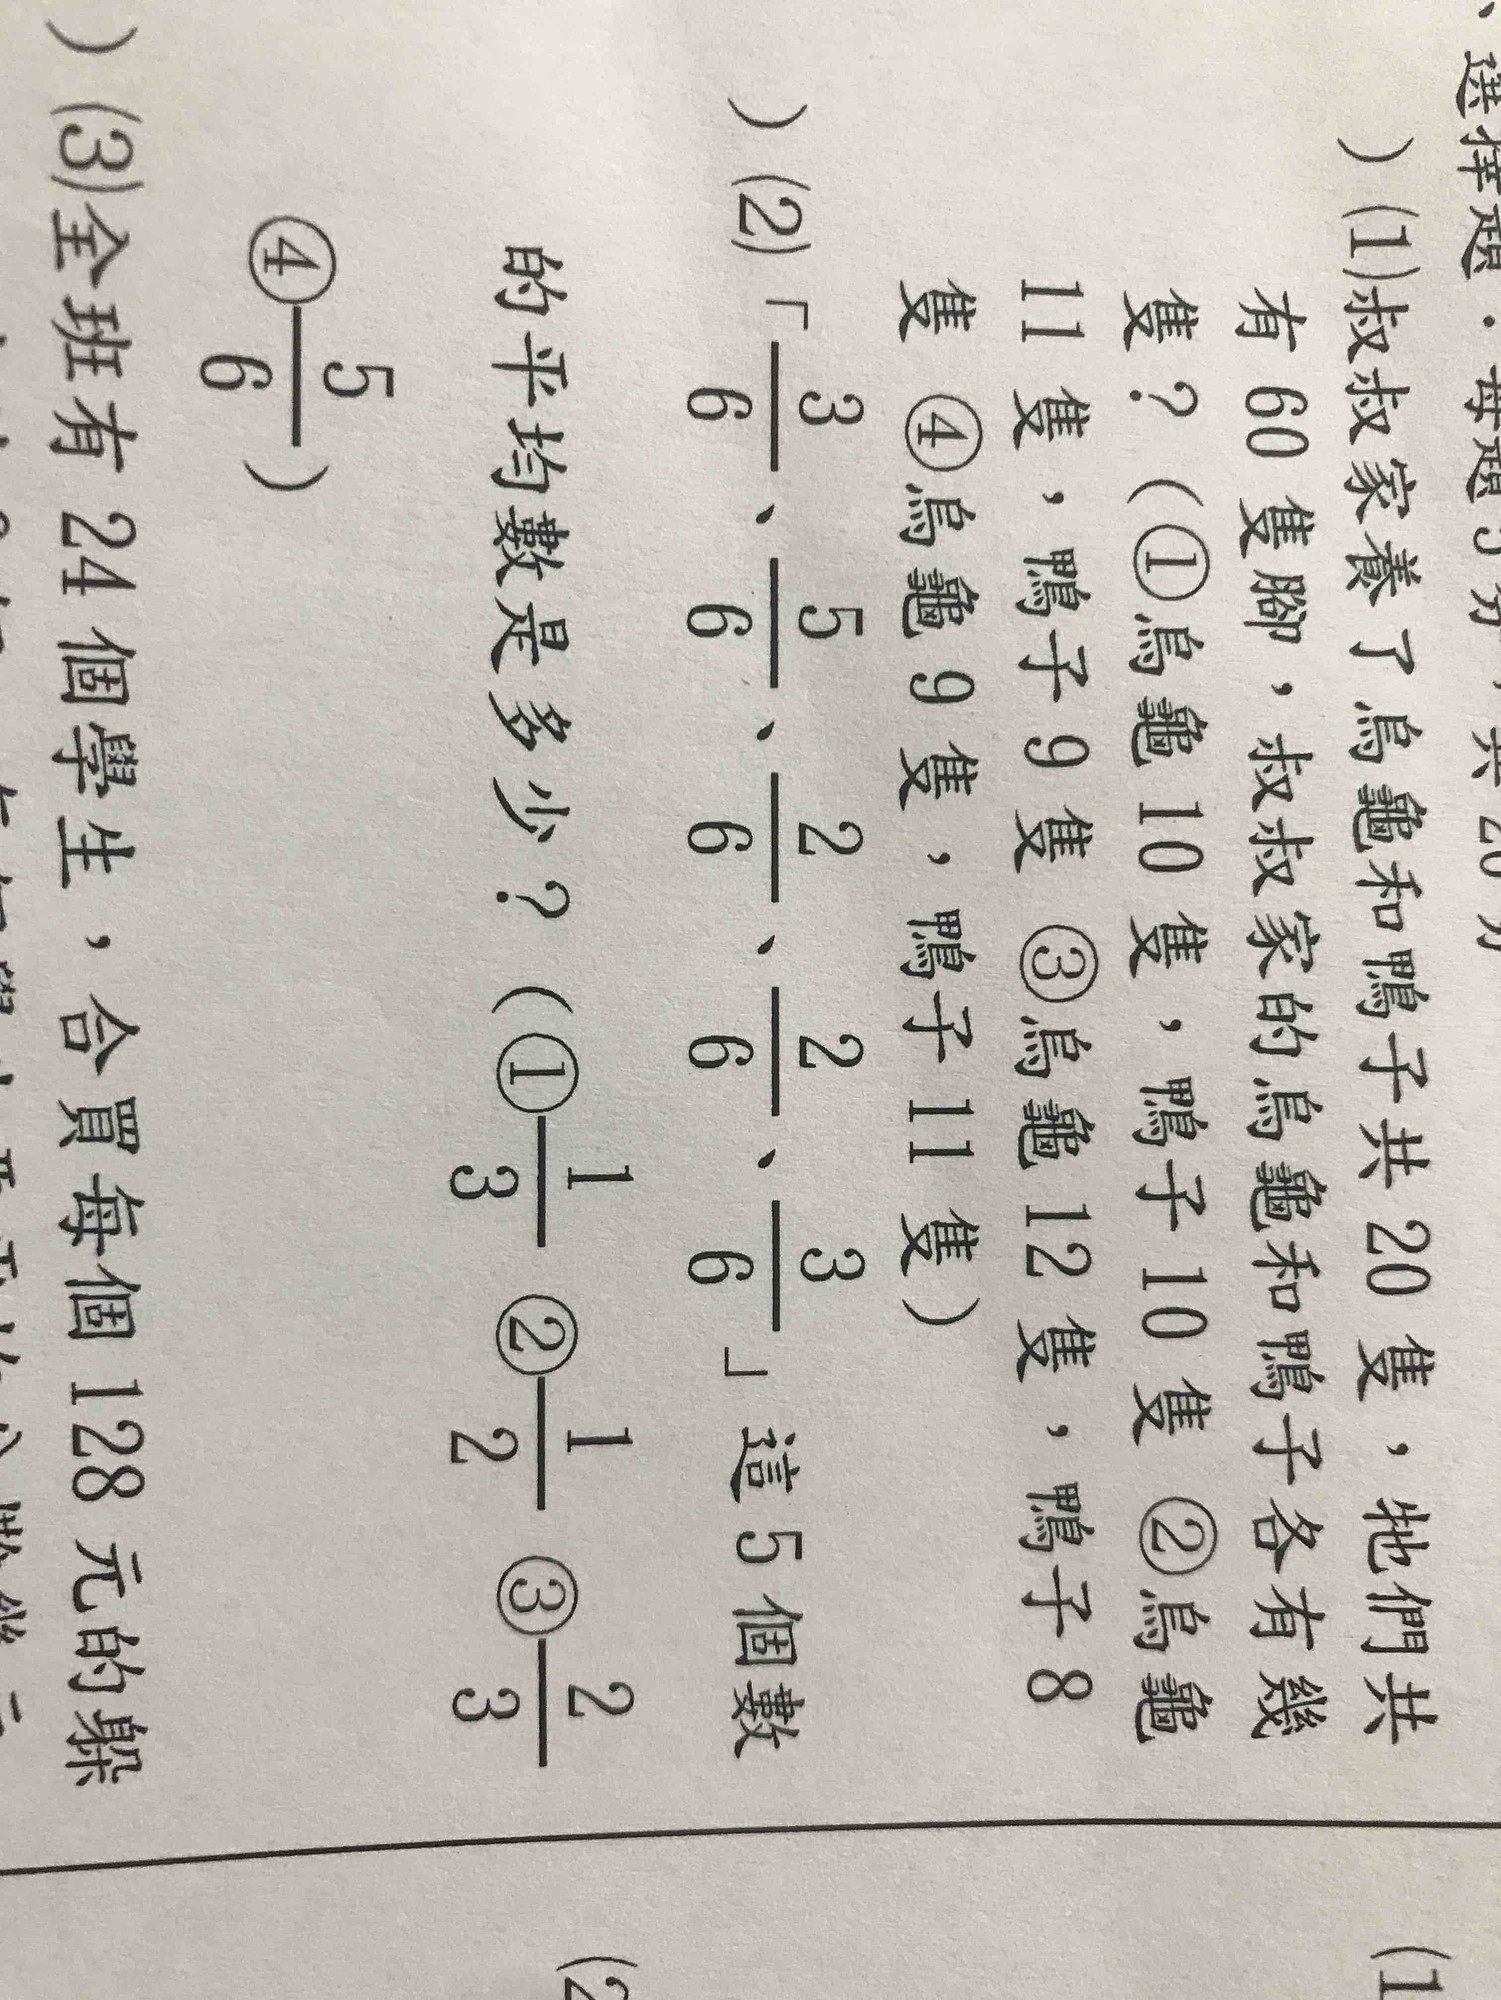 、選擇題：每題5分，共20分
）(1)叔叔家養了烏龜和鴨子共20隻，牠們共
有60隻腳，叔叔家的烏龜和鴨子各有幾
隻？（①烏龜10隻，鴨子10隻 ②烏龜
11隻，鴨子9隻 ③烏龜12隻，鴨子8
隻 ④烏龜9隻，鴨子11隻）
）(2)「3/6、5/6、2/6、2/6、3/6」這5個數
的平均數是多少？（①1/3 ②1/2 ③2/3
④5/6）
）(3)全班有24個學生，合買每個128元的躲
(1
(2